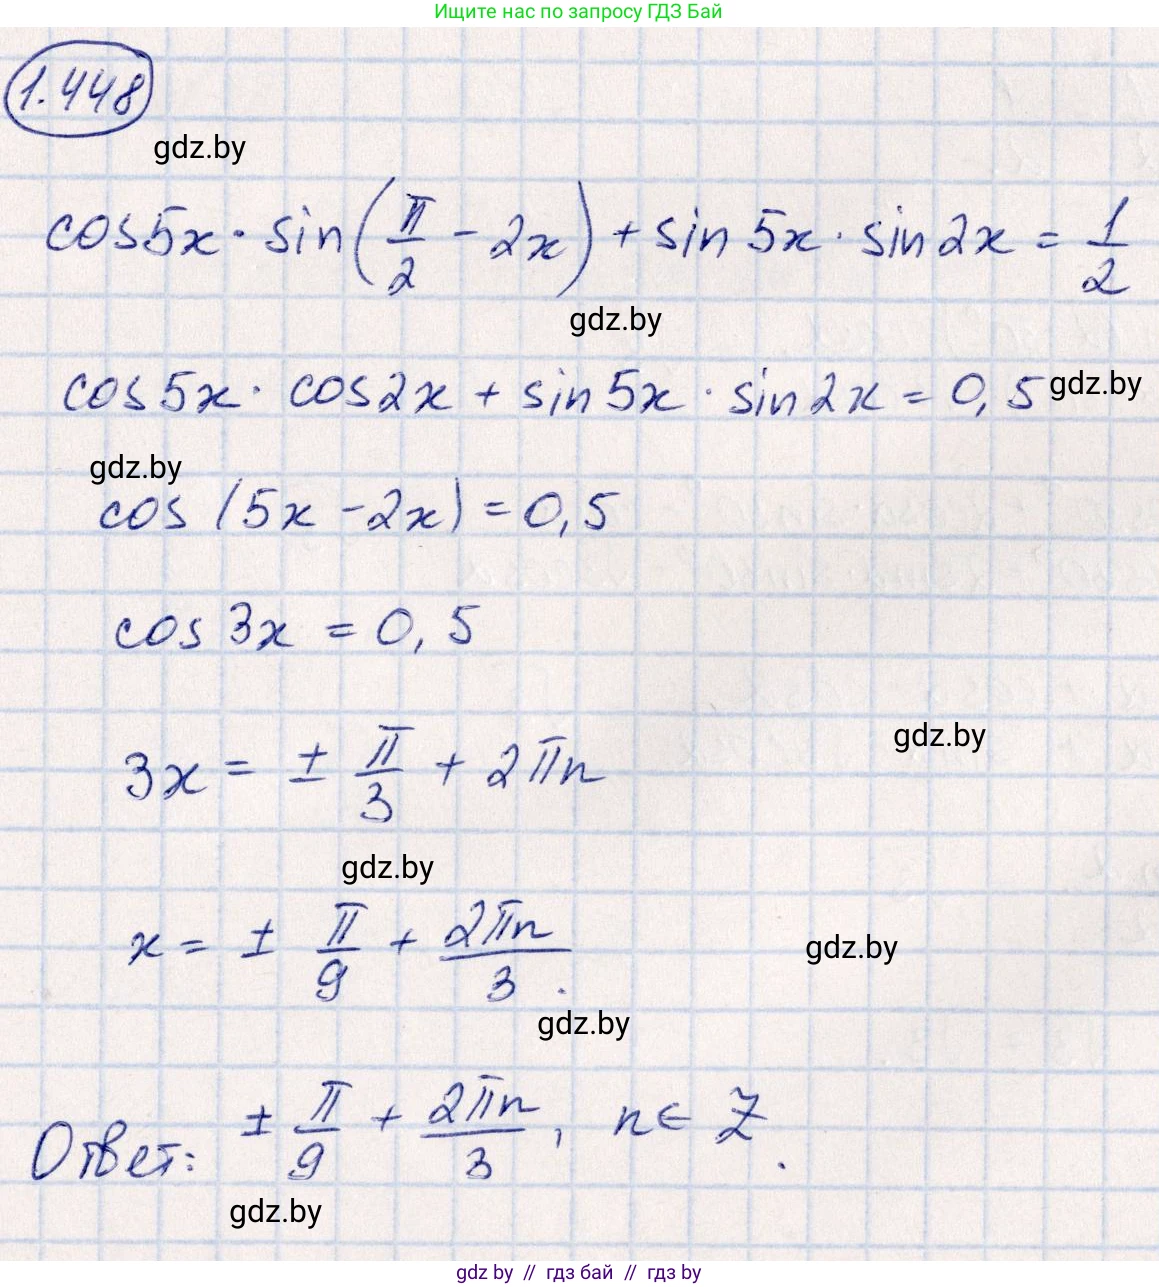 Ищите нас по запросу ГДЗ Бай
1.448
gdz.by
cos5x · sin(π/2 - 2x) + sin5x · sin2x = 1/2
gdz.by
cos5x · cos2x + sin5x · sin2x = 0,5 gdz.by
gdz.by
cos(5x - 2x) = 0,5
cos3x = 0,5
gdz.by
3x = ± π/3 + 2πn
gdz.by
x = ± π/9 + 2πn/3.
gdz.by
gdz.by
Ответ: ± π/9 + 2πn/3, n ∈ Z.
gdz.by
gdz by // гдз бай // гдз by